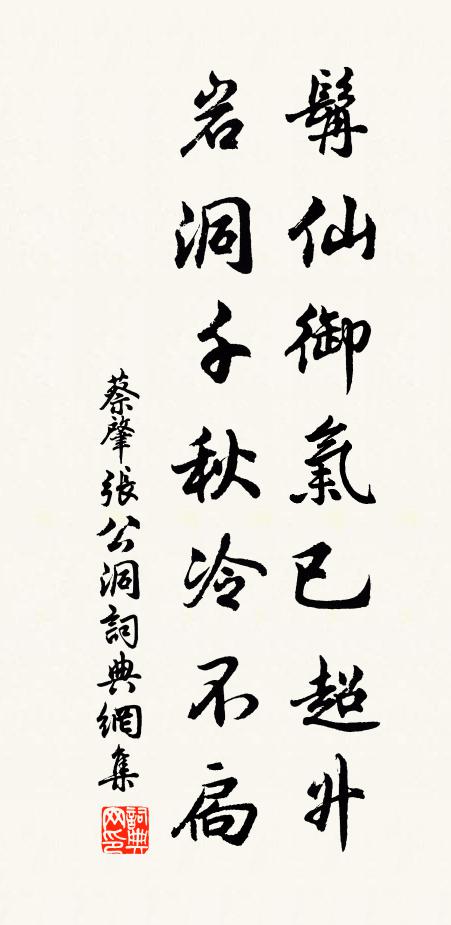 髯仙御氣已超升
岩洞千秋冷不扃
蔡肇張公洞詞典網集
詞典网印